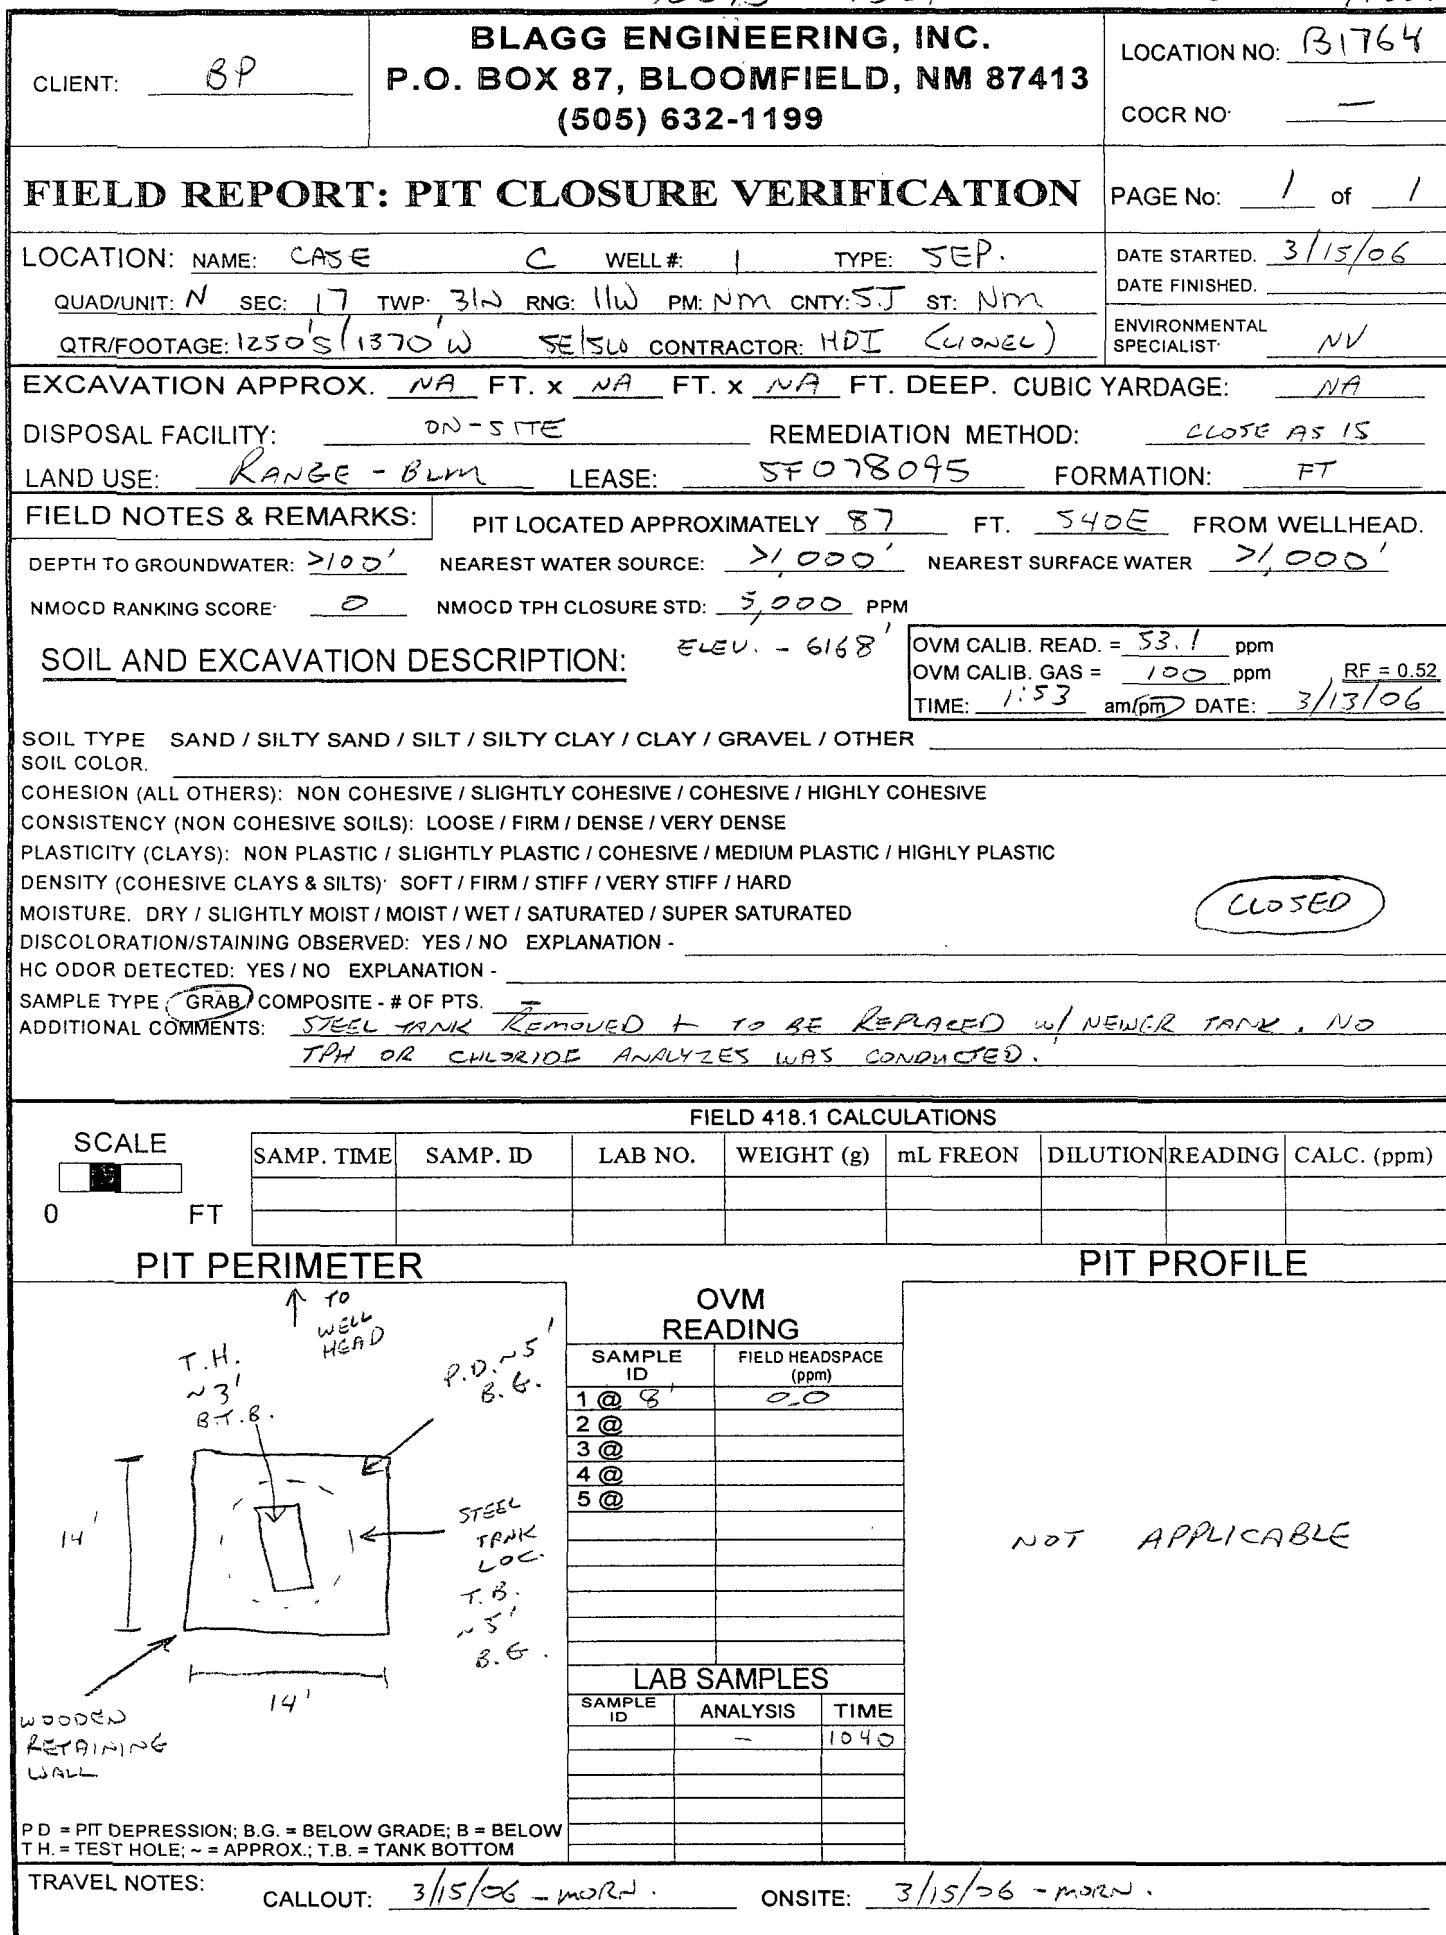 BLAGG ENGINEERING, INC.
P.O. BOX 87, BLOOMFIELD, NM 87413
(505) 632-1199
CLIENT: BP
LOCATION NO: B1764
COCR NO: —
FIELD REPORT: PIT CLOSURE VERIFICATION
PAGE No: 1 of 1
LOCATION: NAME: CASE C WELL #: 1 TYPE: SEP.
QUAD/UNIT: N SEC: 17 TWP: 31N RNG: 11W PM: NM CNTY: SJ ST: NM
QTR/FOOTAGE: 1250'S/1370'W SE/SW CONTRACTOR: HDI (LIONEL)
DATE STARTED. 3/15/06
DATE FINISHED.
ENVIRONMENTAL
SPECIALIST: NV
EXCAVATION APPROX. NA FT. x NA FT. x NA FT. DEEP. CUBIC YARDAGE: NA
DISPOSAL FACILITY: ON-SITE REMEDIATION METHOD: CLOSE AS IS
LAND USE: RANGE - BLM LEASE: SF078095 FORMATION: FT
FIELD NOTES & REMARKS: PIT LOCATED APPROXIMATELY 87 FT. S40E FROM WELLHEAD.
DEPTH TO GROUNDWATER: >100' NEAREST WATER SOURCE: >1,000' NEAREST SURFACE WATER >1,000'
NMOCD RANKING SCORE: 0 NMOCD TPH CLOSURE STD: 5,000 PPM
SOIL AND EXCAVATION DESCRIPTION: ELEV. - 6168'
OVM CALIB. READ. = 53.1 ppm
OVM CALIB. GAS = 100 ppm RF = 0.52
TIME: 1:53 am/pm DATE: 3/13/06
SOIL TYPE SAND / SILTY SAND / SILT / SILTY CLAY / CLAY / GRAVEL / OTHER
SOIL COLOR.
COHESION (ALL OTHERS): NON COHESIVE / SLIGHTLY COHESIVE / COHESIVE / HIGHLY COHESIVE
CONSISTENCY (NON COHESIVE SOILS): LOOSE / FIRM / DENSE / VERY DENSE
PLASTICITY (CLAYS): NON PLASTIC / SLIGHTLY PLASTIC / COHESIVE / MEDIUM PLASTIC / HIGHLY PLASTIC
DENSITY (COHESIVE CLAYS & SILTS): SOFT / FIRM / STIFF / VERY STIFF / HARD
MOISTURE. DRY / SLIGHTLY MOIST / MOIST / WET / SATURATED / SUPER SATURATED
CLOSED
DISCOLORATION/STAINING OBSERVED: YES / NO EXPLANATION -
HC ODOR DETECTED: YES / NO EXPLANATION -
SAMPLE TYPE: GRAB / COMPOSITE - # OF PTS. —
ADDITIONAL COMMENTS: STEEL TANK REMOVED + TO BE REPLACED W/ NEWER TANK. NO
TPH OR CHLORIDE ANALYZES WAS CONDUCTED.
FIELD 418.1 CALCULATIONS
SCALE
0 FT
SAMP. TIME SAMP. ID LAB NO. WEIGHT (g) mL FREON DILUTION READING CALC. (ppm)
PIT PERIMETER
↑ TO
WELL
HEAD
T.H.
~3'
B.T.B.
P.D. ~5'
B.G.
14'
STEEL
TANK
LOC.
T.B.
~5'
B.G.
14'
WOODEN
RETAINING
WALL
P D = PIT DEPRESSION; B.G. = BELOW GRADE; B = BELOW
T H. = TEST HOLE; ~ = APPROX.; T.B. = TANK BOTTOM
OVM
READING
SAMPLE ID FIELD HEADSPACE (ppm)
1 @ 8' 0.0
2 @
3 @
4 @
5 @
LAB SAMPLES
SAMPLE ID ANALYSIS TIME
— 1040
PIT PROFILE
NOT APPLICABLE
TRAVEL NOTES: CALLOUT: 3/15/06 - MORN. ONSITE: 3/15/06 - MORN.